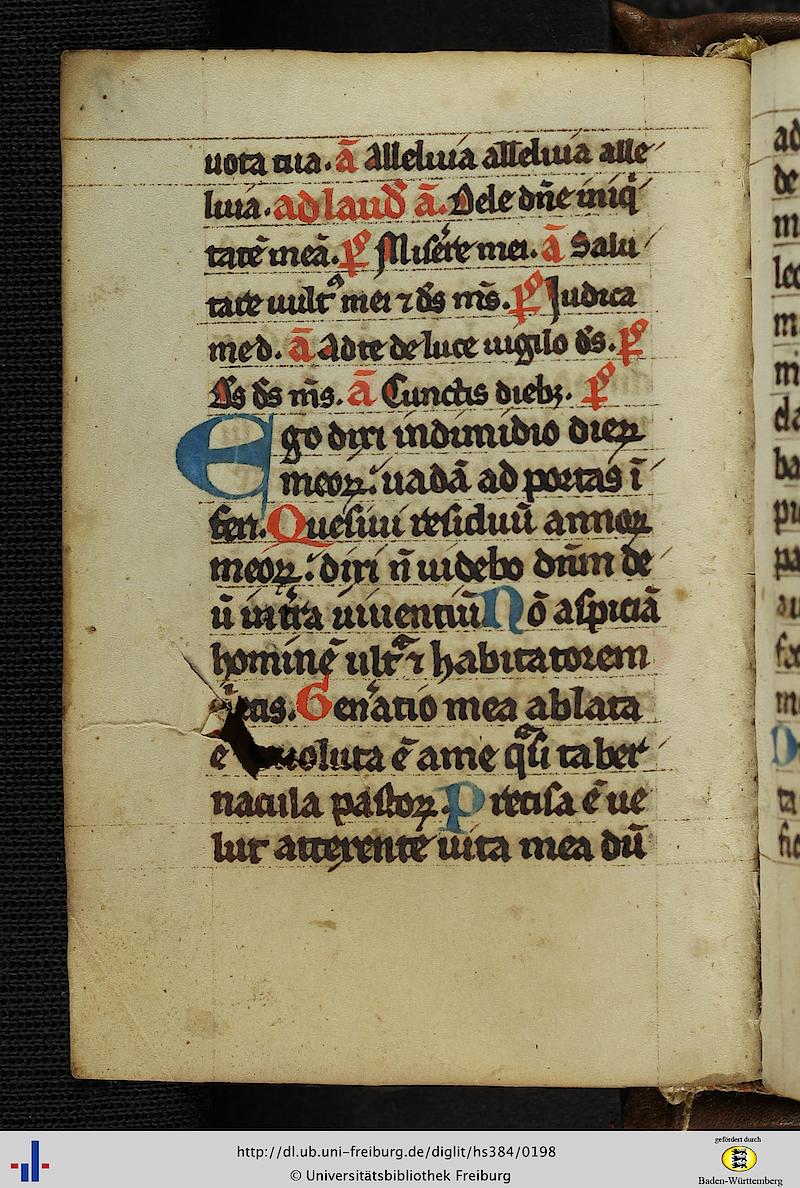 uota tua. ā Alleluia alleluia alle
luia. ad laud̄ ā. Dele dn̄e iniq̇
tatē meā. p̄s Miserͤre mei. ā Salu
tare uultꝰ mei ⁊ ds̄ ms̄. p̄s Judica
me d. ā Ad te de luce uigilo ds̄. p̄s
Ds̄ ds̄ ms̄. ā Cunctis diebꝫ. p̄s
Ego dixi in dimidio dieꝝ
meoꝝ: uadā ad portas ī
feri. Quesiui residuū annoꝝ
meoꝝ: dixi n̄ uidebo dn̄m de
ū in tr̄a uiuentiū Nō aspiciā
hominē ultͣ ⁊ habitatorem
Gen̄atio mea ablata
ē uoluta ē a me qͣi taber
nacula pastoꝝ. Precisa ē ue
lut a texente uita mea dū
http://dl.ub.uni-freiburg.de/diglit/hs384/0198
© Universitätsbibliothek Freiburg
gefördert durch
Baden-Württemberg